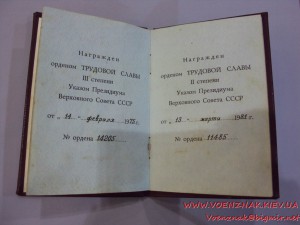 Награжден
орденом ТРУДОВОЙ СЛАВЫ
III степени
Указом Президиума
Верховного Совета СССР
от „14 - февраля 1975 г.
№ ордена 14205
Награжден
орденом ТРУДОВОЙ СЛАВЫ
II степени
Указом Президиума
Верховного Совета СССР
от „13 - марта 1981 г.
№ ордена 11485
WWW.VOENZNAK.KIEV.UA
Voenznak@bigmir.net